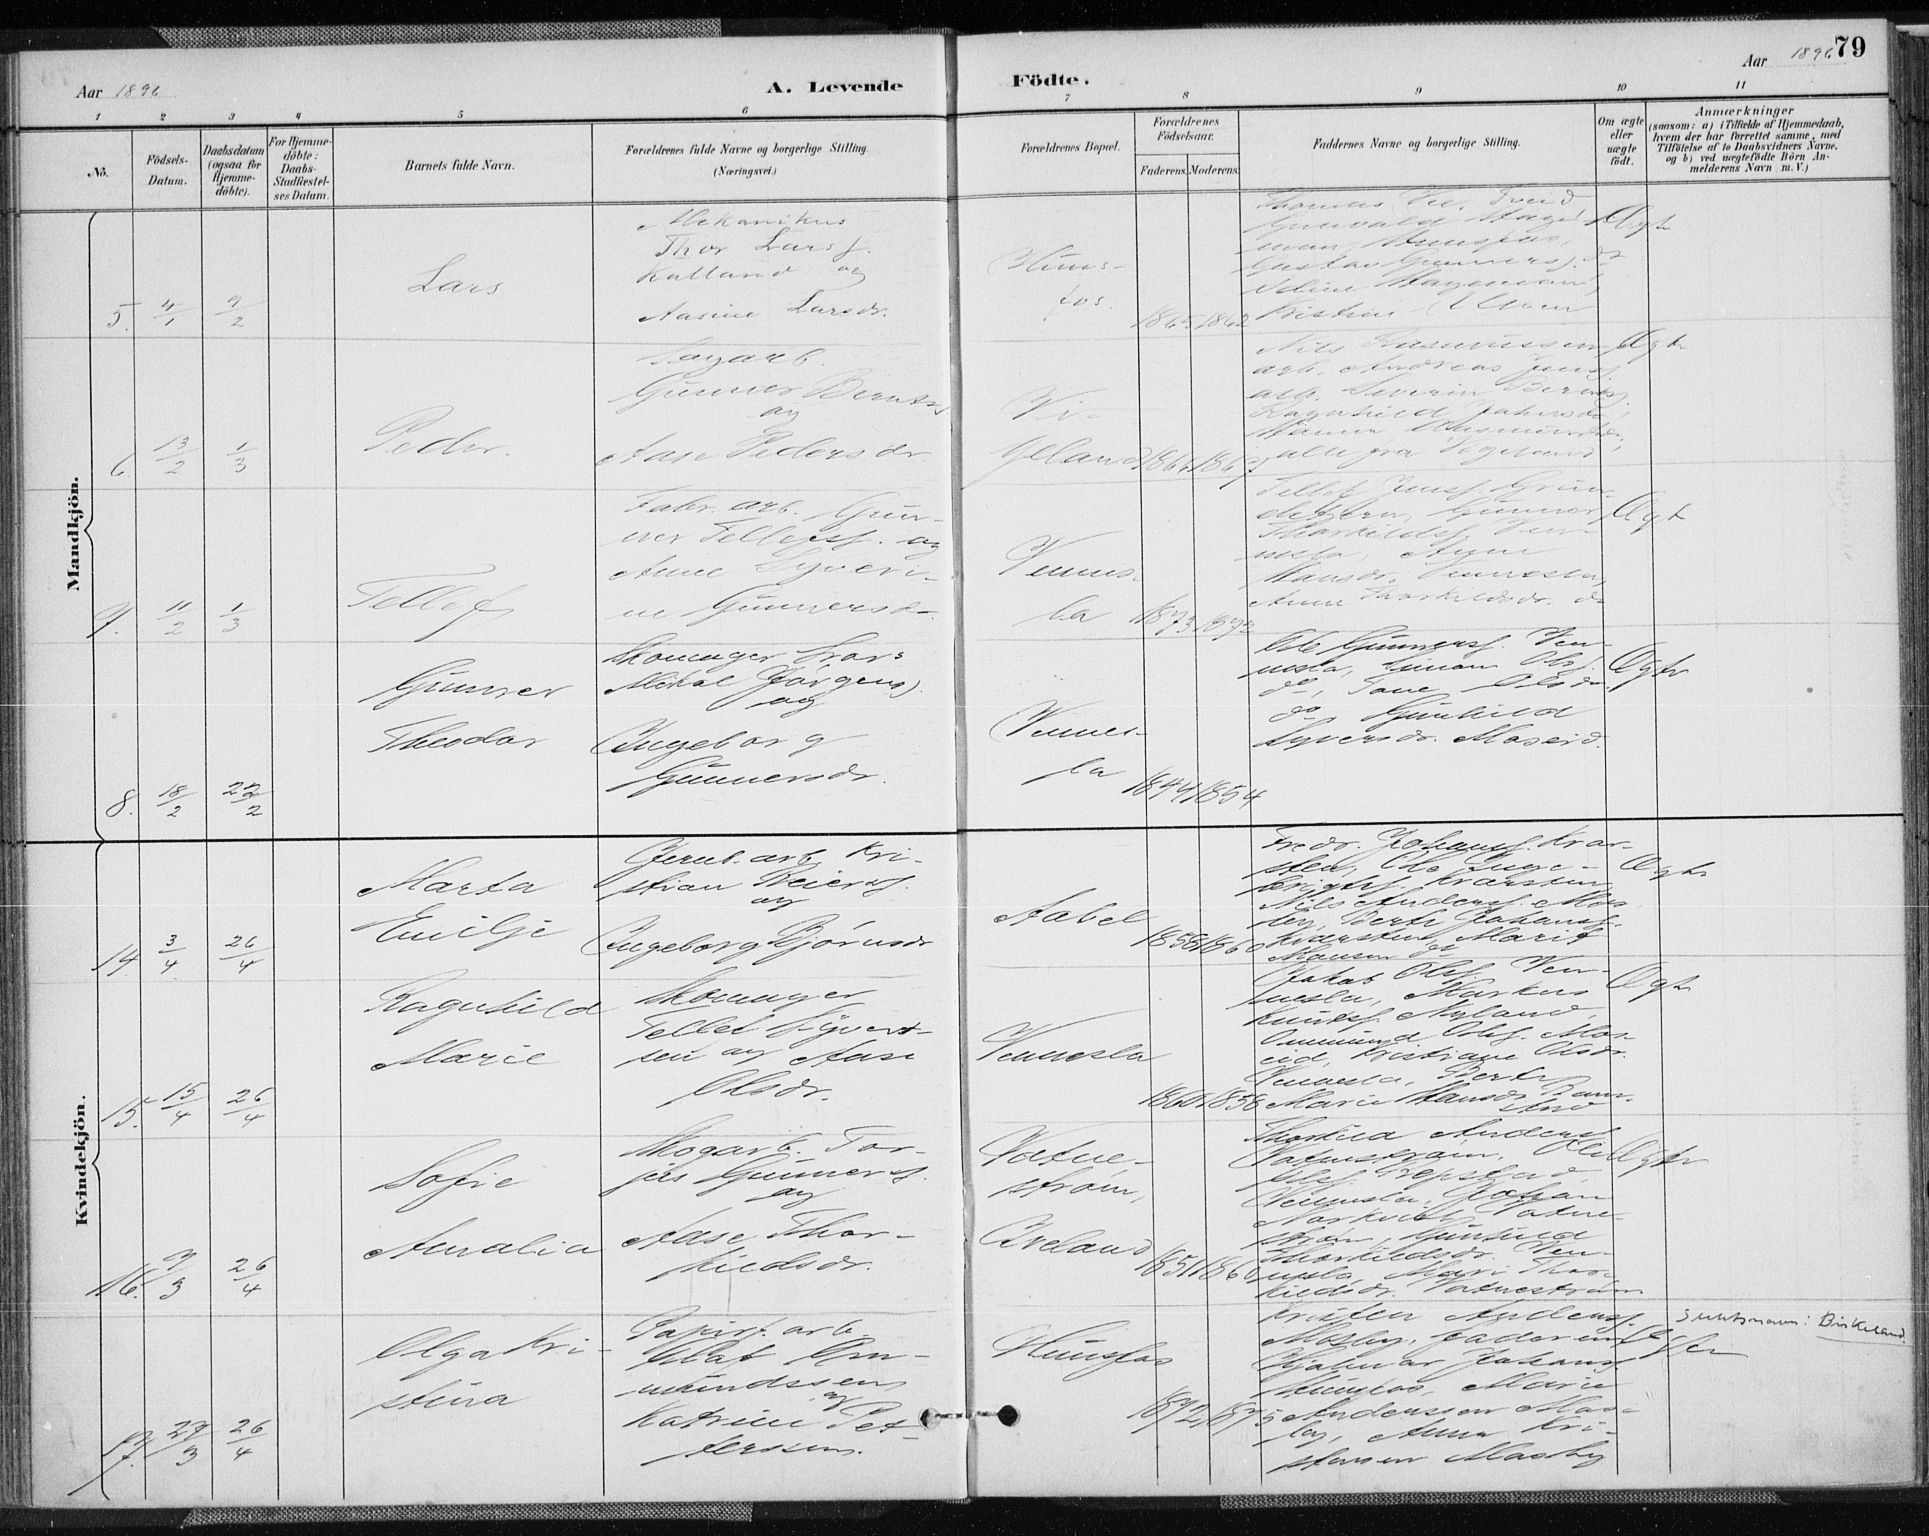 Aar 1896
A. Levende
Födte.
Aar 1896
79
1 2 3 4 5 6 7 8 9 10 11
No.
Födsels-
Datum.
Daabsdatum
(ogsaa for
Hjemme-
döbte).
For Hjemme-
döbte:
Daabs-
Stadfæstel-
ses Datum.
Barnets fulde Navn.
Forældrenes fulde Navne og borgerlige Stilling.
(Næringsvei.)
Forældrenes Bopæl.
Forældrenes
Födselsaar.
Faderens. Moderens.
Faddernes Navne og borgerlige Stilling.
Om ægte
eller
uægte
födt.
Anmærkninger
(saasom: a) i Tilfælde af Hjemmedaab,
hvem der har forrettet samme, med
Tilföielse af to Daabsvidners Navne,
og b) ved uægtefödte Börn An-
melderens Navn m. V.)
Mandkjön.
5. 4/1 9/2
Lars
Mekanikus
Thor Larss.
Kalland og
Aasine Larsdr.
Huns-
fos.
1865 1862
Gustav Gunners. do
Kristine
Ægte
6. 13/2 1/3
Peder.
Sagarb.
Gunner Berntss.
og
Aase Pedersdr.
Vi-
geland
Nils Rasmussen
arb. Andreas Jenss.
arb. Severin Bernts.
Ragnhild
alle fra Vigeland
Ægte
7. 11/2 1/3
Tellef
Fabr. arb. Gun-
ner Tellefss. og
Anne Syveri-
ne Gunnersdr.
Vennes-
la
1873 1872
Tellef Jenss. Grun-
Gunner
Thorkildss. Ven-
nesla,
Hansdr. Vennesla,
Anne Thorkildsdr. do
Ægte
8. 18/2 23/2
Gunner
Theodor
Skomager Lars
Mikal Jørgens.
og
Ingeborg
Gunnersdr.
Vennes-
la
1844 1854
Ole Gunnerss. Ven-
nesla, Simon Ols.
do, Tone Olsdr.
do, Gunhild
Syversdr. Moseid.
Ægte
Kvindekjön.
14. 3/4 26/4
Marta
Emilje
Jernb. arb. Kri-
stian Reierss.
og
Ingeborg Bjørnsdr
Aabel
1858 1860
Fredr. Johanss. Krar-
sten, Ole Inge-
brigts. Krarsten,
Nils Anderss. Mos-
by, Berte Johanss.
Krarsten, Marit
Hansen do
Ægte
15. 15/4 26/4
Ragnhild
Marie
Skomager
Tellef Syvert-
sen og Aase
Olsdr.
Vennesla
1860 1858
Jakob Ols. Ven-
nesla, Markus
Knuts. Nyland,
Ommund Ols. Mos-
eid, Kristiane Olsdr.
Vennesla, Berte
Marie Hansdr. Ram-
Ægte
16. 9/3 26/4
Sofie
Amalia
Skogarb. Tor-
jus Gunners.
og
Aase Thor-
kildsdr.
Vatne-
strøm,
Iveland
1851 1860
Thorkild Anders.
Vatnestrøm, Ole
Ols. Repstad,
Vennesla, Johan
Markvis Vatne-
strøm, Gunhild
Thorkildsdr. Ven-
nesla, Mari Thor-
kildsdr. Vatnestrøm
Ægte
17. 29/3 26/4
Olga Kri-
stina
Papirf. arb.
Olaf Om-
mundssen
og
Katrine Pet-
terssen.
Hunsfos
1872 1875
Kristen Anderss.
Mosby, faderen,
Hjalmar Johanss.
Hunsfos, Marie
Anderssen Mos-
by, Anna Kri-
stensen Mosby
Ægte
Slektsnavn: Birkeland.